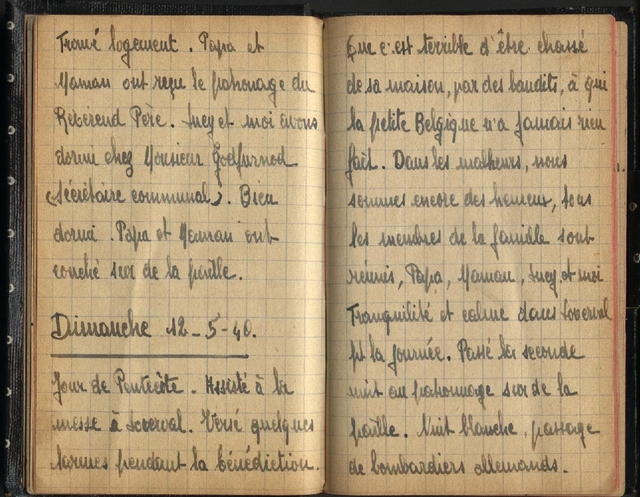 Trouvé logement. Papa et
Maman ont reçu le patronage du
Révérend Père. Lucy et moi avons
dormi chez Monsieur Godfurnod
(secrétaire communal). Bien
dormi. Papa et Maman ont
couché sur de la paille.
Dimanche 12-5-40.
Jour de Pentecôte. Assisté à la
messe à Loverval. Versé quelques
larmes pendant la bénédiction.
Que c'est terrible d'être chassé
de sa maison, par des bandits, à qui
la petite Belgique n'a jamais rien
fait. Dans les malheurs, nous
sommes encore des heureux, tous
les membres de la famille sont
réunis, Papa, Maman, Lucy et moi
Tranquilité et calme dans Loverval
pt la journée. Passé la seconde
nuit au patronage sur de la
paille. Nuit blanche, passage
de bombardiers allemands.